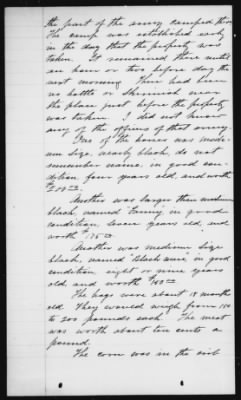 the part of the army camped there
The camp was established early
in the day that the property was
taken. It remained there until
an hour or two before day the
next morning. There had been
no battle or skirmish near
the place just before the property
was taken. I did not know
any of the officers of that army.
One of the horses was med-
ium size, nearly black, do not
remember name, in good con-
dition, four years old, and worth
$200.00.
Another was larger than medium
black, named Fanny, in good
condition, seven years old, and
worth 175.00
Another was medium size
black, named "Black" in good
condition eight or nine years
old, and worth
The hogs were about 18 months
old. They would weigh from 150
to 200 pounds each. The meat
was worth about ten cents a
pound.
The corn was in the crib